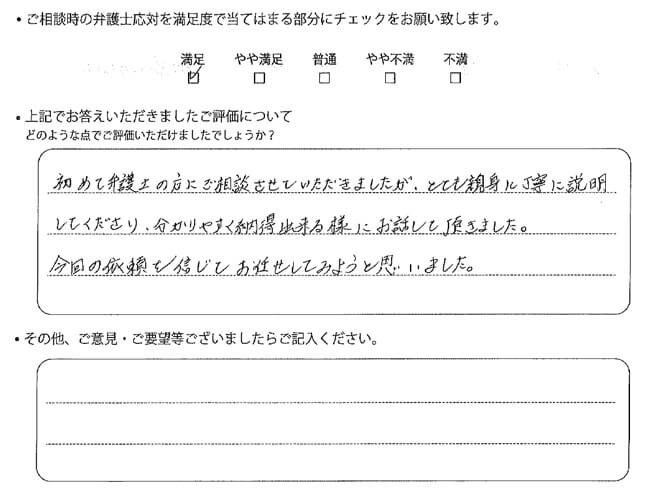 ・ご相談時の弁護士応対を満足度で当てはまる部分にチェックをお願い致します。
満足 やや満足 普通 やや不満 不満
・上記でお答えいただきましたご評価について
どのような点でご評価いただけましたでしょうか？
初めて弁護士の方にご相談させていただきましたが、とても親身に丁寧に説明
してくださり、分かりやすく納得出来る様にお話して頂きました。
今回の依頼を信じてお任せしてみようと思いました。
・その他、ご意見・ご要望等ございましたらご記入ください。